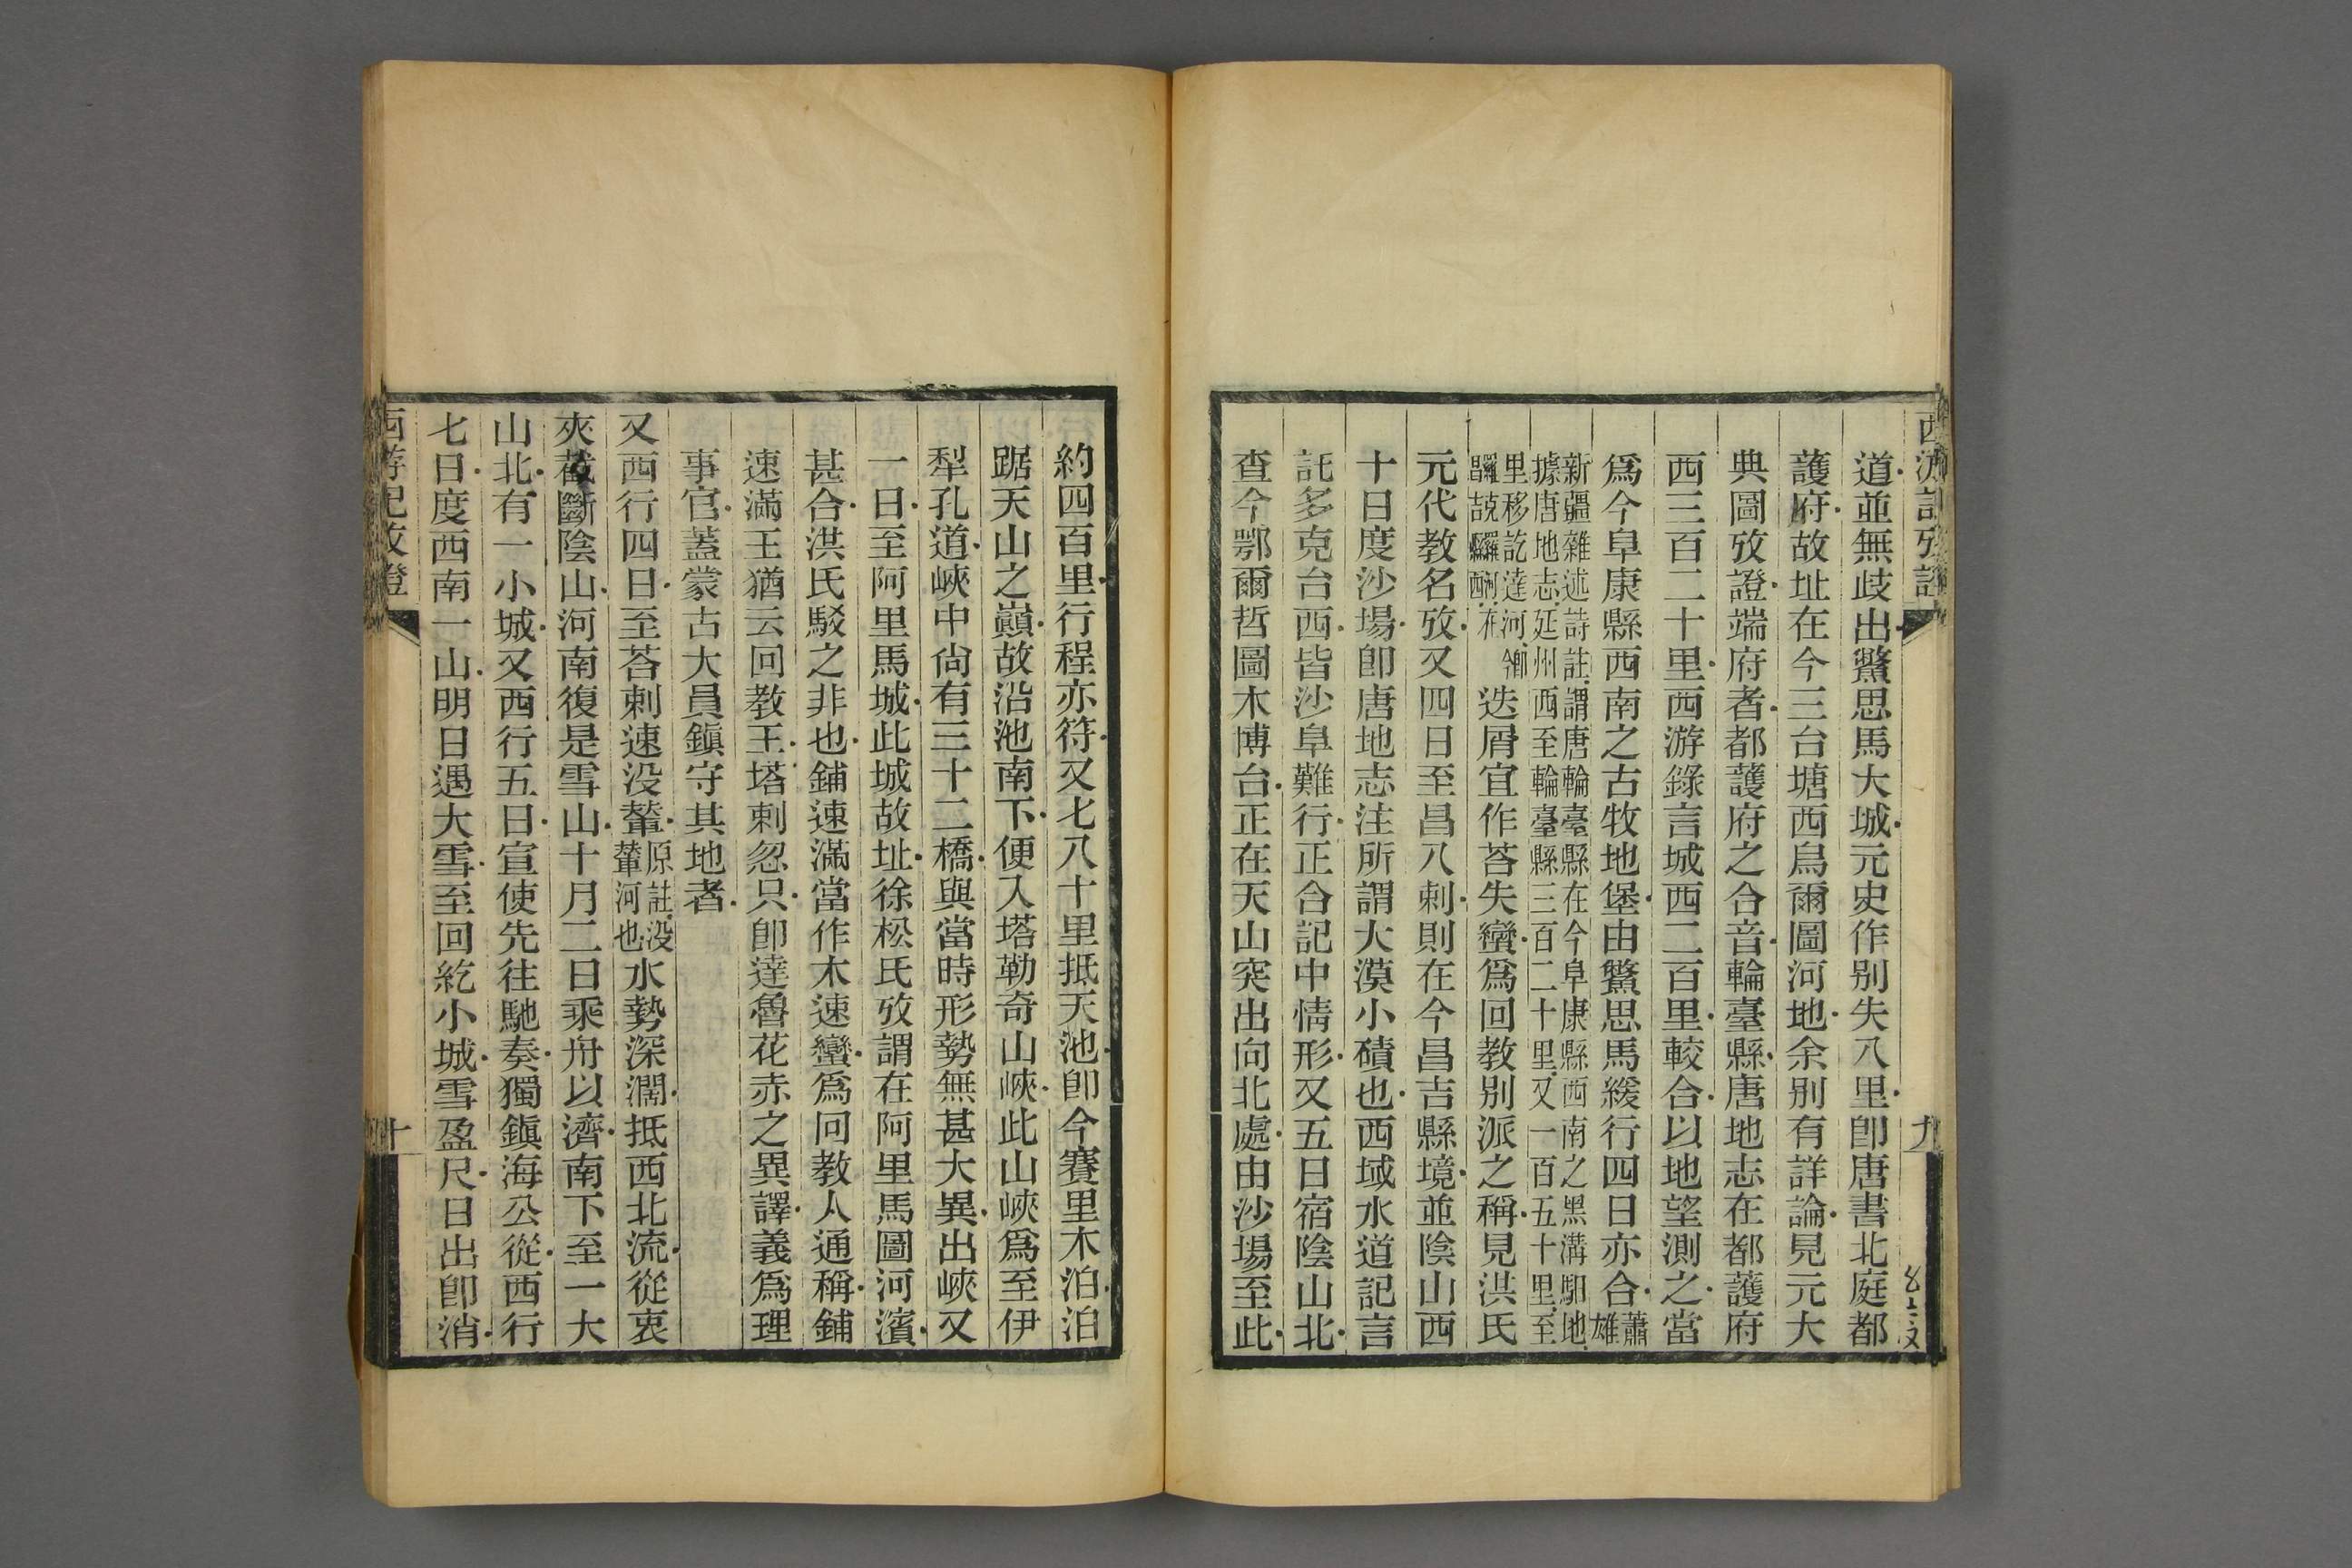 西游記攷證
九
道並無歧出鱉思馬大城元史作别失八里卽唐書北庭都
護府故址在今三台塘西烏爾圖河地余别有詳論見元大
典圖攷證端府者都護府之合音輪臺縣唐地志在都護府
西三百二十里西游錄言城西二百里較合以地望測之當
爲今阜康縣西南之古牧地堡由鱉思馬緩行四日亦合蕭雄
新疆雜述詩註謂唐輪臺縣在今阜康縣西南之黑溝馹地
據唐地志延州西至輪臺縣三百二十里又一百五十里至
里移訖達河
迭屑宜作荅失蠻爲回教别派之稱見洪氏
元代教名攷又四日至昌八剌則在今昌吉縣境並陰山西
十日度沙場卽唐地志注所謂大漠小磧也西域水道記言
託多克台西皆沙阜難行正合記中情形又五日宿陰山北
查今鄂爾哲圖木博台正在天山突出向北處由沙場至此
約四百里行程亦符又七八十里抵天池卽今賽里木泊泊
踞天山之巔故沿池南下便入塔勒奇山峽此山峽爲至伊
犁孔道峽中尙有三十二橋與當時形勢無甚大異出峽又
一日至阿里馬城此城故址徐松氏攷謂在阿里馬圖河濱
甚合洪氏駁之非也鋪速滿當作木速蠻爲回教人通稱鋪
速滿王猶云回教王塔剌忽只卽達魯花赤之異譯義爲理
事官蓋蒙古大員鎭守其地者
又西行四日至荅剌速没輦原註没輦河也水勢深濶抵西北流從東
夾截斷陰山河南復是雪山十月二日乘舟以濟南下至一大
山北有一小城又西行五日宣使先往馳奏獨鎭海公從西行
七日度西南一山明日遇大雪至回紇小城雪盈尺日出卽消
西游記攷證
十